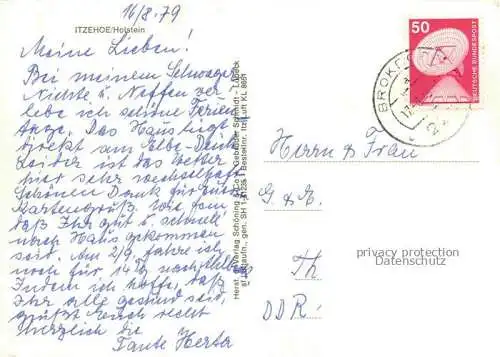 ITZEHOE/Holstein
16/8.79
Meine Lieben!
Bei meinem Schwager
Nichte u. Neffen ver
lebe ich schöne Ferien
tage. Das Haus liegt
direkt am Elbe-Deich
Leider ist das Wetter
hier sehr wechselhaft
Schönen Dank für Eure
Kartengrüße. Wie fein
daß Ihr gut u. schnell
nach Haus gekommen
seit. Am 2/9. fahre ich
noch für 14 Tg nach
Indem ich hoffe, daß
Ihr alle gesund seit,
grüßt Euch recht
herzlich die
Tante Herta
Verlag Schöning & Co + Gebrüder Schmidt - Lübeck
gen. SH 1-5125 Bestellnr. Itz Luft KL 8661
50
DEUTSCHE BUNDESPOST
BROKDORF
Herrn u. Frau
G. u. E.
Th
DDR.
privacy protection
Datenschutz